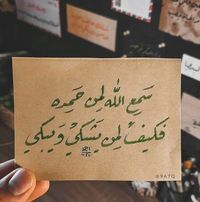 سَمِعَ اللهُ لِمن حَمِده
فكيفَ لِمن يَشكِيْ وَيبكي